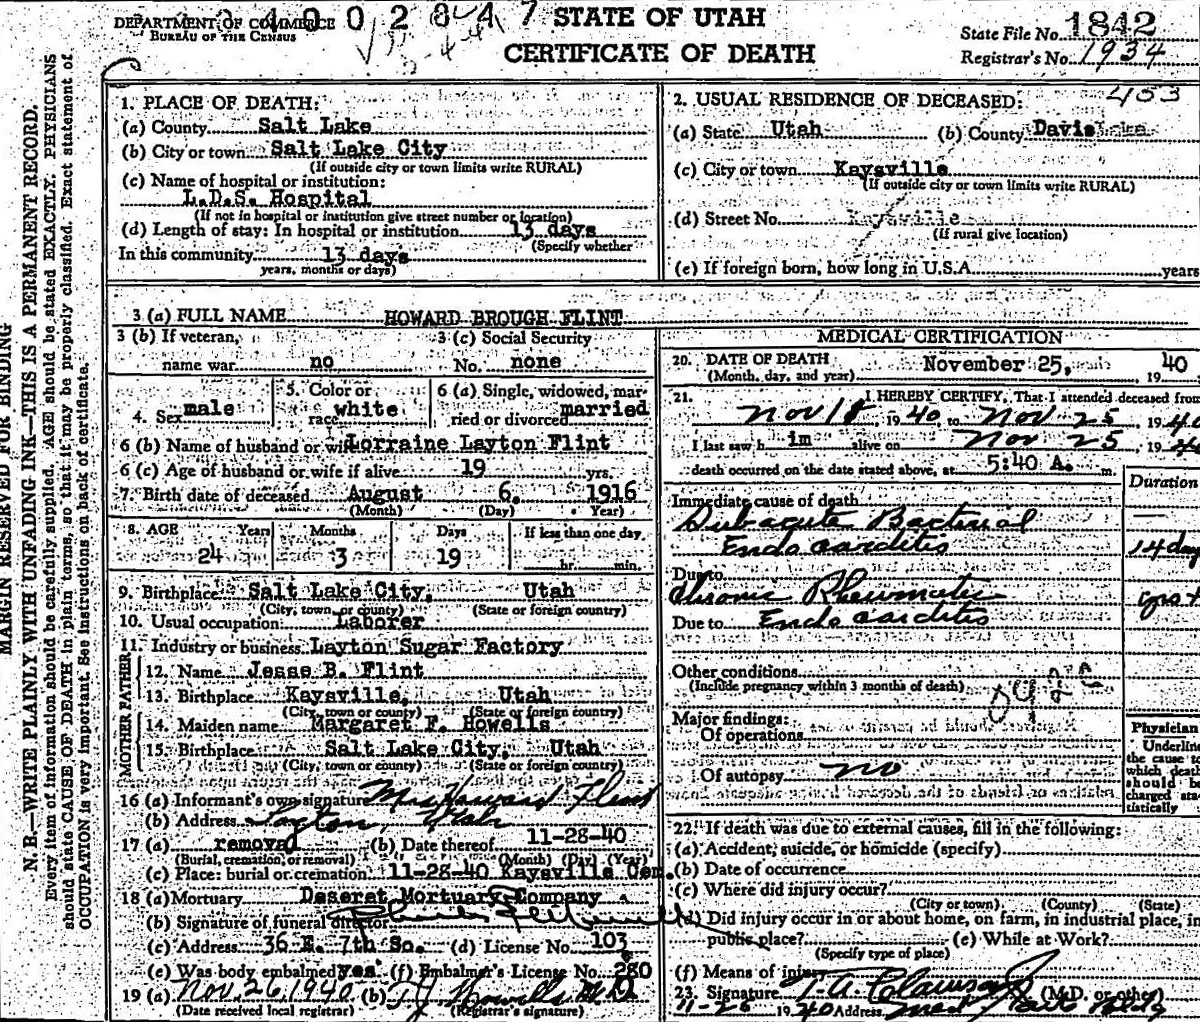 DEPARTMENT OF COMMERCE
BUREAU OF THE CENSUS
STATE OF UTAH
CERTIFICATE OF DEATH
State File No. 1842
Registrar's No. 1934
453
MARGIN RESERVED FOR BINDING
N. B.—WRITE PLAINLY WITH UNFADING INK—THIS IS A PERMANENT RECORD.
Every item of information should be carefully supplied. AGE should be stated EXACTLY. PHYSICIANS
should state CAUSE OF DEATH in plain terms, so that it may be properly classified. Exact statement of
OCCUPATION is very important. See instructions on back of certificate.
1. PLACE OF DEATH:
(a) County Salt Lake
(b) City or town Salt Lake City
(If outside city or town limits write RURAL)
(c) Name of hospital or institution:
L.D.S. Hospital
(If not in hospital or institution give street number or location)
(d) Length of stay: In hospital or institution 13 days
(Specify whether
In this community 13 days
years, months or days)
2. USUAL RESIDENCE OF DECEASED:
(a) State Utah (b) County Davis
(c) City or town Kaysville
(If outside city or town limits write RURAL)
(d) Street No. Kaysville
(If rural give location)
(e) If foreign born, how long in U.S.A. years
3 (a) FULL NAME HOWARD BROUGH FLINT
3 (b) If veteran, 3 (c) Social Security
name war no No. none
4. Sex male 5. Color or race white 6 (a) Single, widowed, married or divorced married
6 (b) Name of husband or wife Lorraine Layton Flint
6 (c) Age of husband or wife if alive 19 yrs.
7. Birth date of deceased August 6, 1916
(Month) (Day) (Year)
8. AGE Years Months Days If less than one day
24 3 19 hr. min.
9. Birthplace Salt Lake City, Utah
(City, town, or county) (State or foreign country)
10. Usual occupation Laborer
11. Industry or business Layton Sugar Factory
FATHER
12. Name Jesse B. Flint
13. Birthplace Kaysville, Utah
(City, town or county) (State or foreign country)
MOTHER
14. Maiden name Margaret F. Howells
15. Birthplace Salt Lake City, Utah
(City, town or county) (State or foreign country)
16 (a) Informant's own signature Mrs Howard Flint
(b) Address Layton, Utah
17 (a) removal (b) Date thereof 11-28-40
(Burial, cremation, or removal) (Month) (Day) (Year)
(c) Place: burial or cremation 11-28-40 Kaysville Cem.
18 (a) Mortuary Deseret Mortuary Company
(b) Signature of funeral director
(c) Address 36 E. 7th So. (d) License No. 103
(e) Was body embalmed yes (f) Embalmer's License No. 280
19 (a) Nov. 26, 1940 (b)
(Date received local registrar) (Registrar's signature)
MEDICAL CERTIFICATION
20. DATE OF DEATH November 25, 1940
(Month, day, and year)
21. I HEREBY CERTIFY, That I attended deceased from
Nov 18 1940 to Nov 25 1940
I last saw him alive on Nov 25 19
death occurred on the date stated above, at 5:40 A. m.
Duration
Immediate cause of death
Subacute Bacterial
Endocarditis 14 days
Due to
Chronic Rheumatic yrs +
Due to Endocarditis
Other conditions
(Include pregnancy within 3 months of death)
Major findings:
Of operations
Of autopsy no
Physician
Underline
the cause to
which death
should be
charged sta-
tistically
22. If death was due to external causes, fill in the following:
(a) Accident, suicide, or homicide (specify)
(b) Date of occurrence
(c) Where did injury occur?
(City or town) (County) (State)
(d) Did injury occur in or about home, on farm, in industrial place, in
public place? (e) While at Work?
(Specify type of place)
(f) Means of injury
23. Signature T. A. Clawson Jr (M.D. or other)
11-26 1940 Address Med